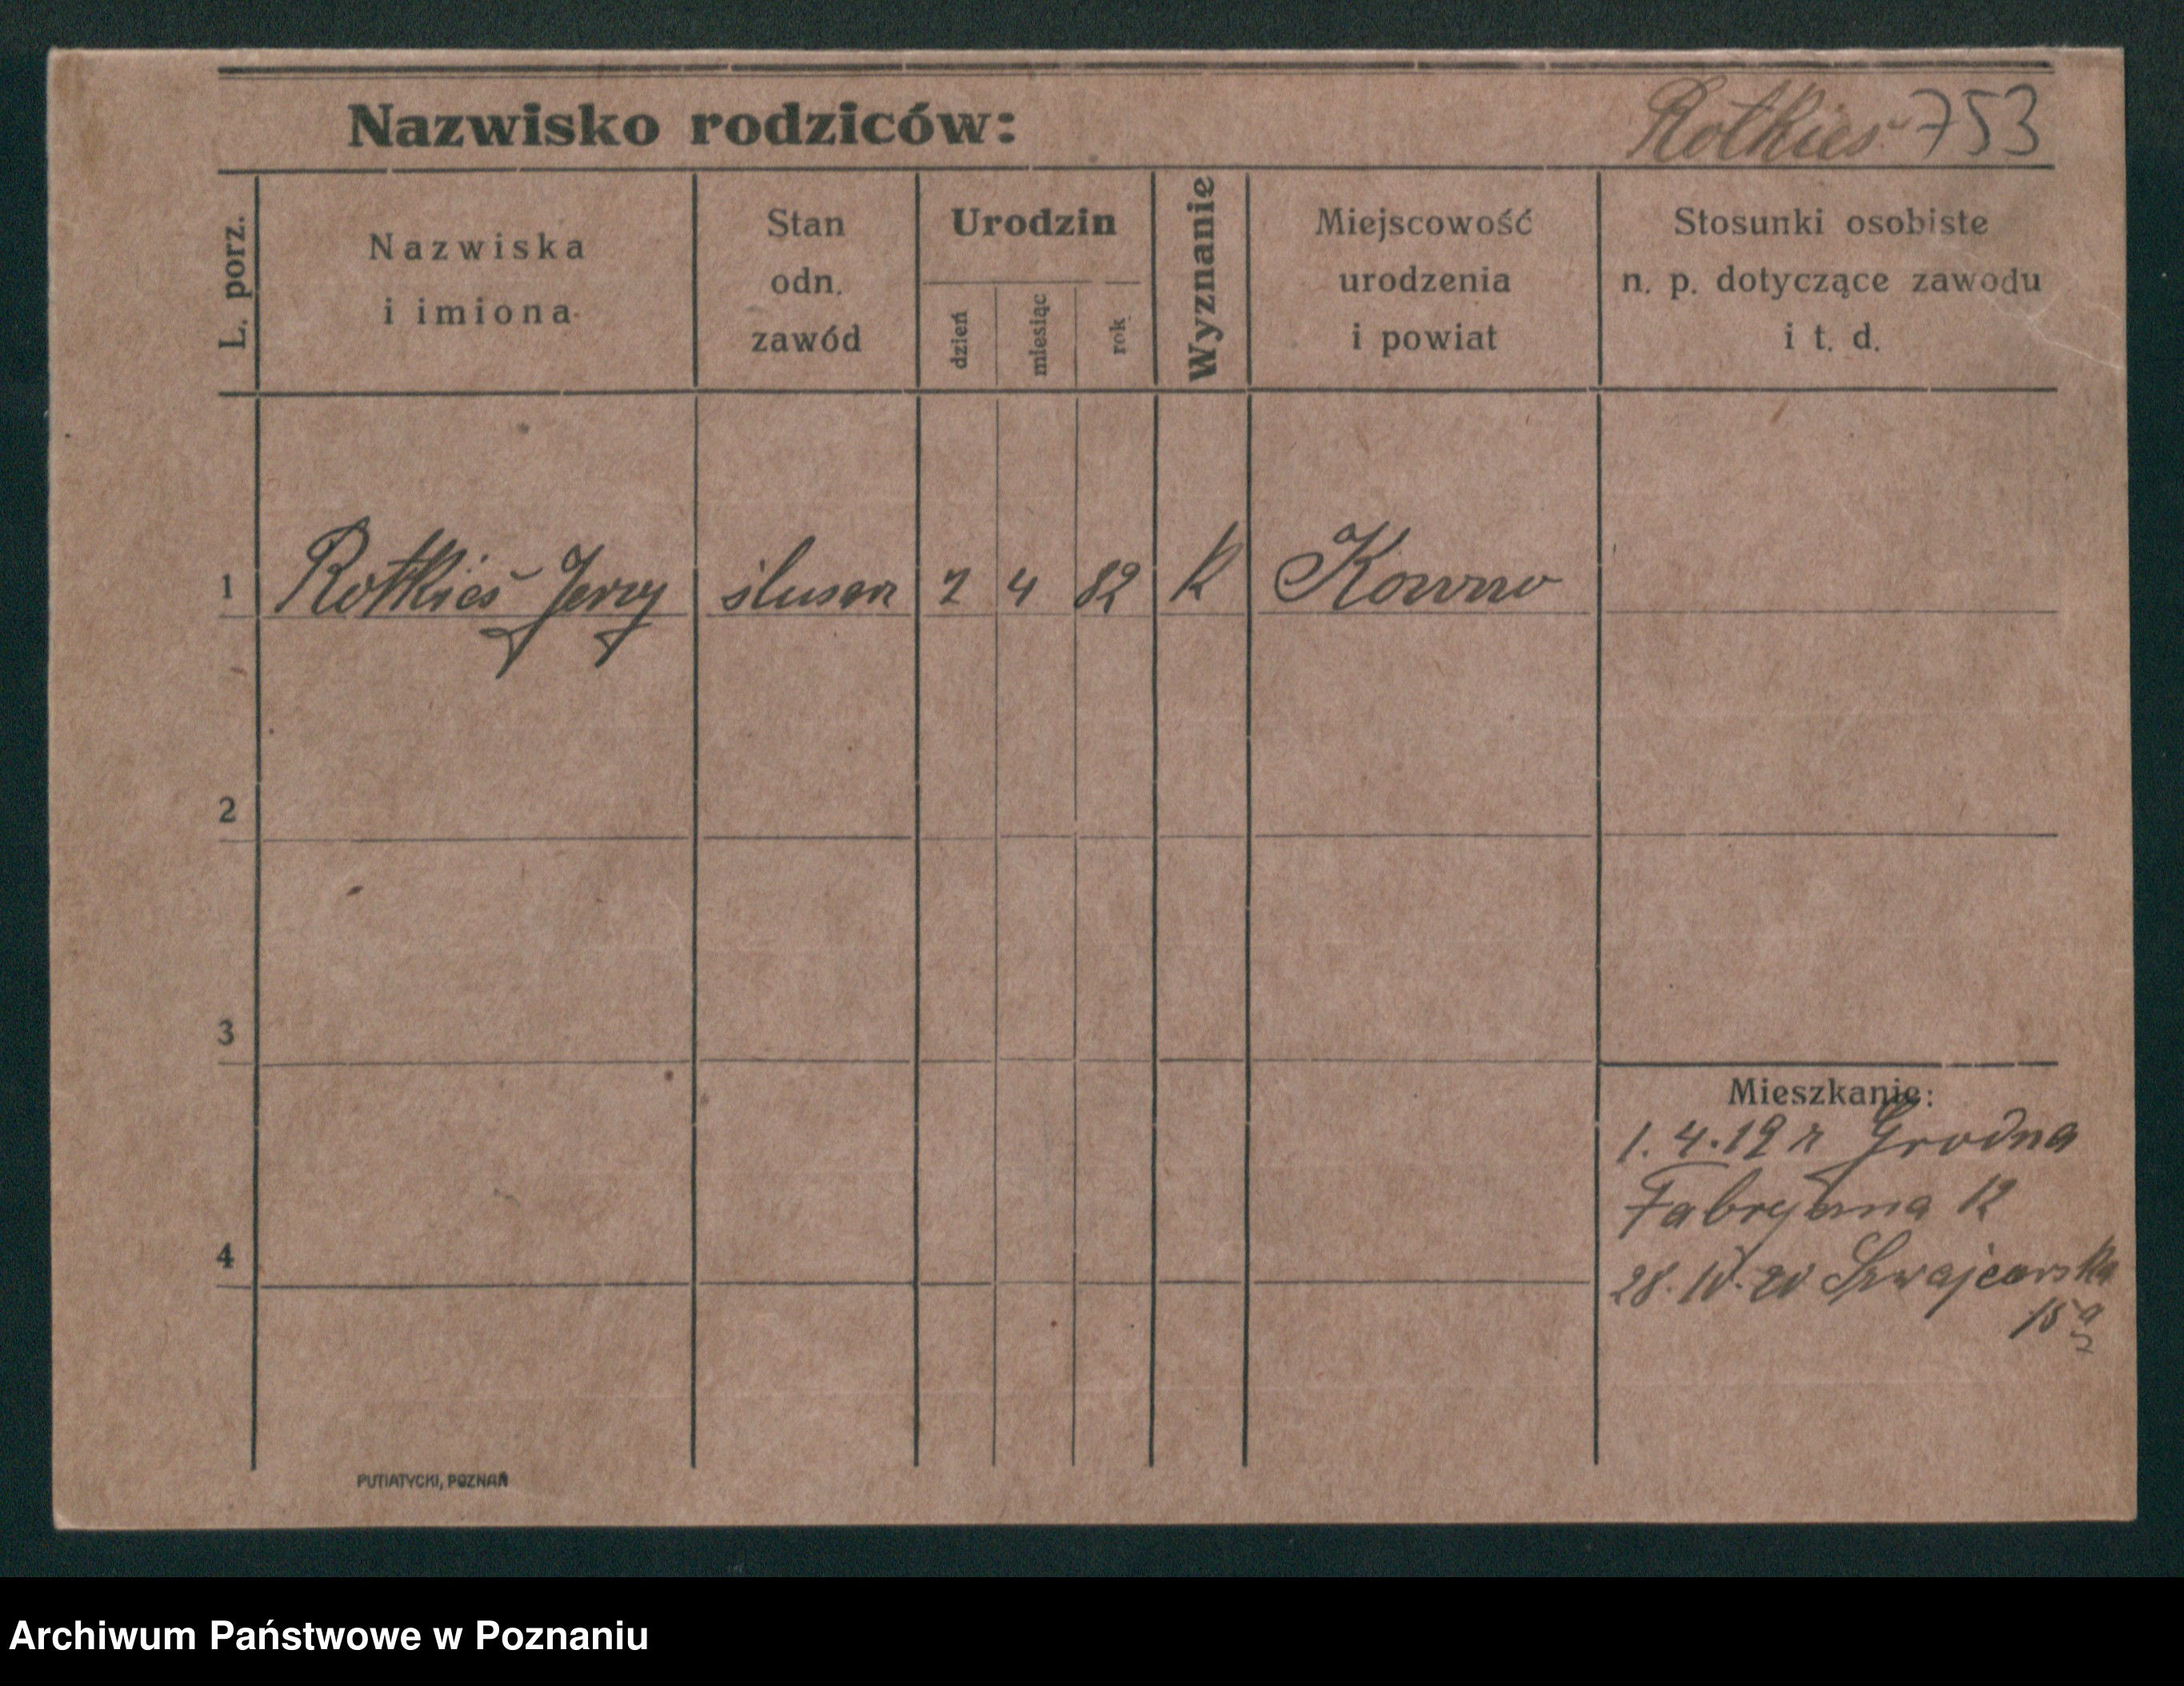 Nazwisko rodziców: Rotkieś 753
L. porz.
Nazwiska
i imiona
Stan
odn.
zawód
Urodzin
dzień
miesiąc
rok
Wyznanie
Miejscowość
urodzenia
i powiat
Stosunki osobiste
n. p. dotyczące zawodu
i t. d.
1 Rotkieś Jerzy 4 82 K Kowno
2
3
4
Mieszkanie:
1. 4. 19 z Grodna
12
28. IV. 20 Szwajcarska
PUTIATYCKI, POZNAŃ
Archiwum Państwowe w Poznaniu